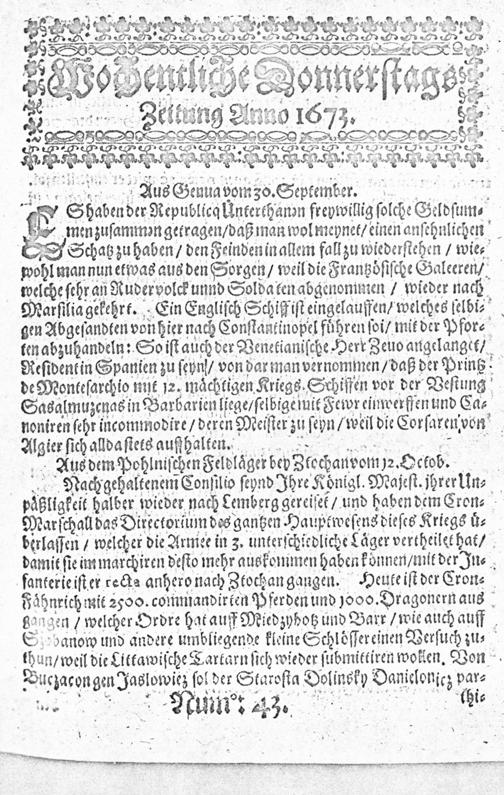 Wochentliche Donnerstags
Zeitung Anno 1673.
Aus Genua vom 30. September.
ES haben der Republicq Unterthanen freywillig solche Geldsum-
men zusammen getragen / daß man wol meynet / einen ansehnlichen
Schatz zu haben / den Feinden in allem fall zu wiederstehen / wie-
wohl man nun etwas aus den Sorgen / weil die Frantzösische Galeeren /
welche sehr an Rudervolck unnd Soldaten abgenommen / wieder nach
Marsilia gekehrt. Ein Englisch Schiff ist eingelauffen / welches selbi-
gen Abgesandten von hier nach Constantinopel führen sol / mit der Pfor-
ten abzuhandeln: So ist auch der Venetianische Herr Zeno angelanget /
Resident in Spanien zu seyn / von dar man vernommen / daß der Printz
de Montesarchio mit 12. mächtigen Kriegs-Schiffen vor der Vestung
Sasalmuzenas in Barbarien liege / selbige mit Fewr einwerffen und Ca-
noniren sehr incommodire / deren Meister zu seyn / weil die Corsaren von
Algier sich allda stets auffhalten.
Aus dem Pohlnischen Feldläger bey Ztochan vom 12. Octob.
Nach gehaltenem Consilio seynd Ihre Königl. Majest. ihrer Un-
päßligkeit halber wieder nach Lemberg gereiset / und haben dem Cron-
Marschall das Directorium des gantzen Hauptwesens dieses Kriegs ü-
berlassen / welcher die Armee in 3. unterschiedliche Läger vertheilet hat /
damit sie im marchiren desto mehr auskommen haben können / mit der In-
fanterie ist er recta anhero nach Ztochan gangen. Heute ist der Cron-
Fähnrich mit 2500. commandirten Pferden und 1000. Dragonern aus
gangen / welcher Ordre hat auff Miedzyhotz und Barr / wie auch auff
und andere umbliegende kleine Schlösser einen Versuch zu-
thun / weil die Littawische Tartarn sich wieder submittiren wollen. Von
Buczacon gen Jaslowiez sol der Starosta Dolinsky par-
Num°: 43. thi-